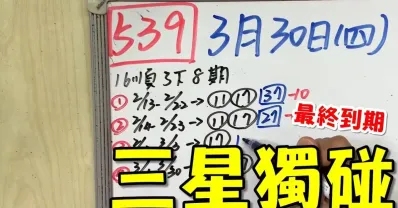 539 3月30日(四)
16順3下8期
① 2/13-2/22→⑪⑰37-10
② 2/14-2/23→⑪⑰27→最終到期
③ ⑰
三星獨碰